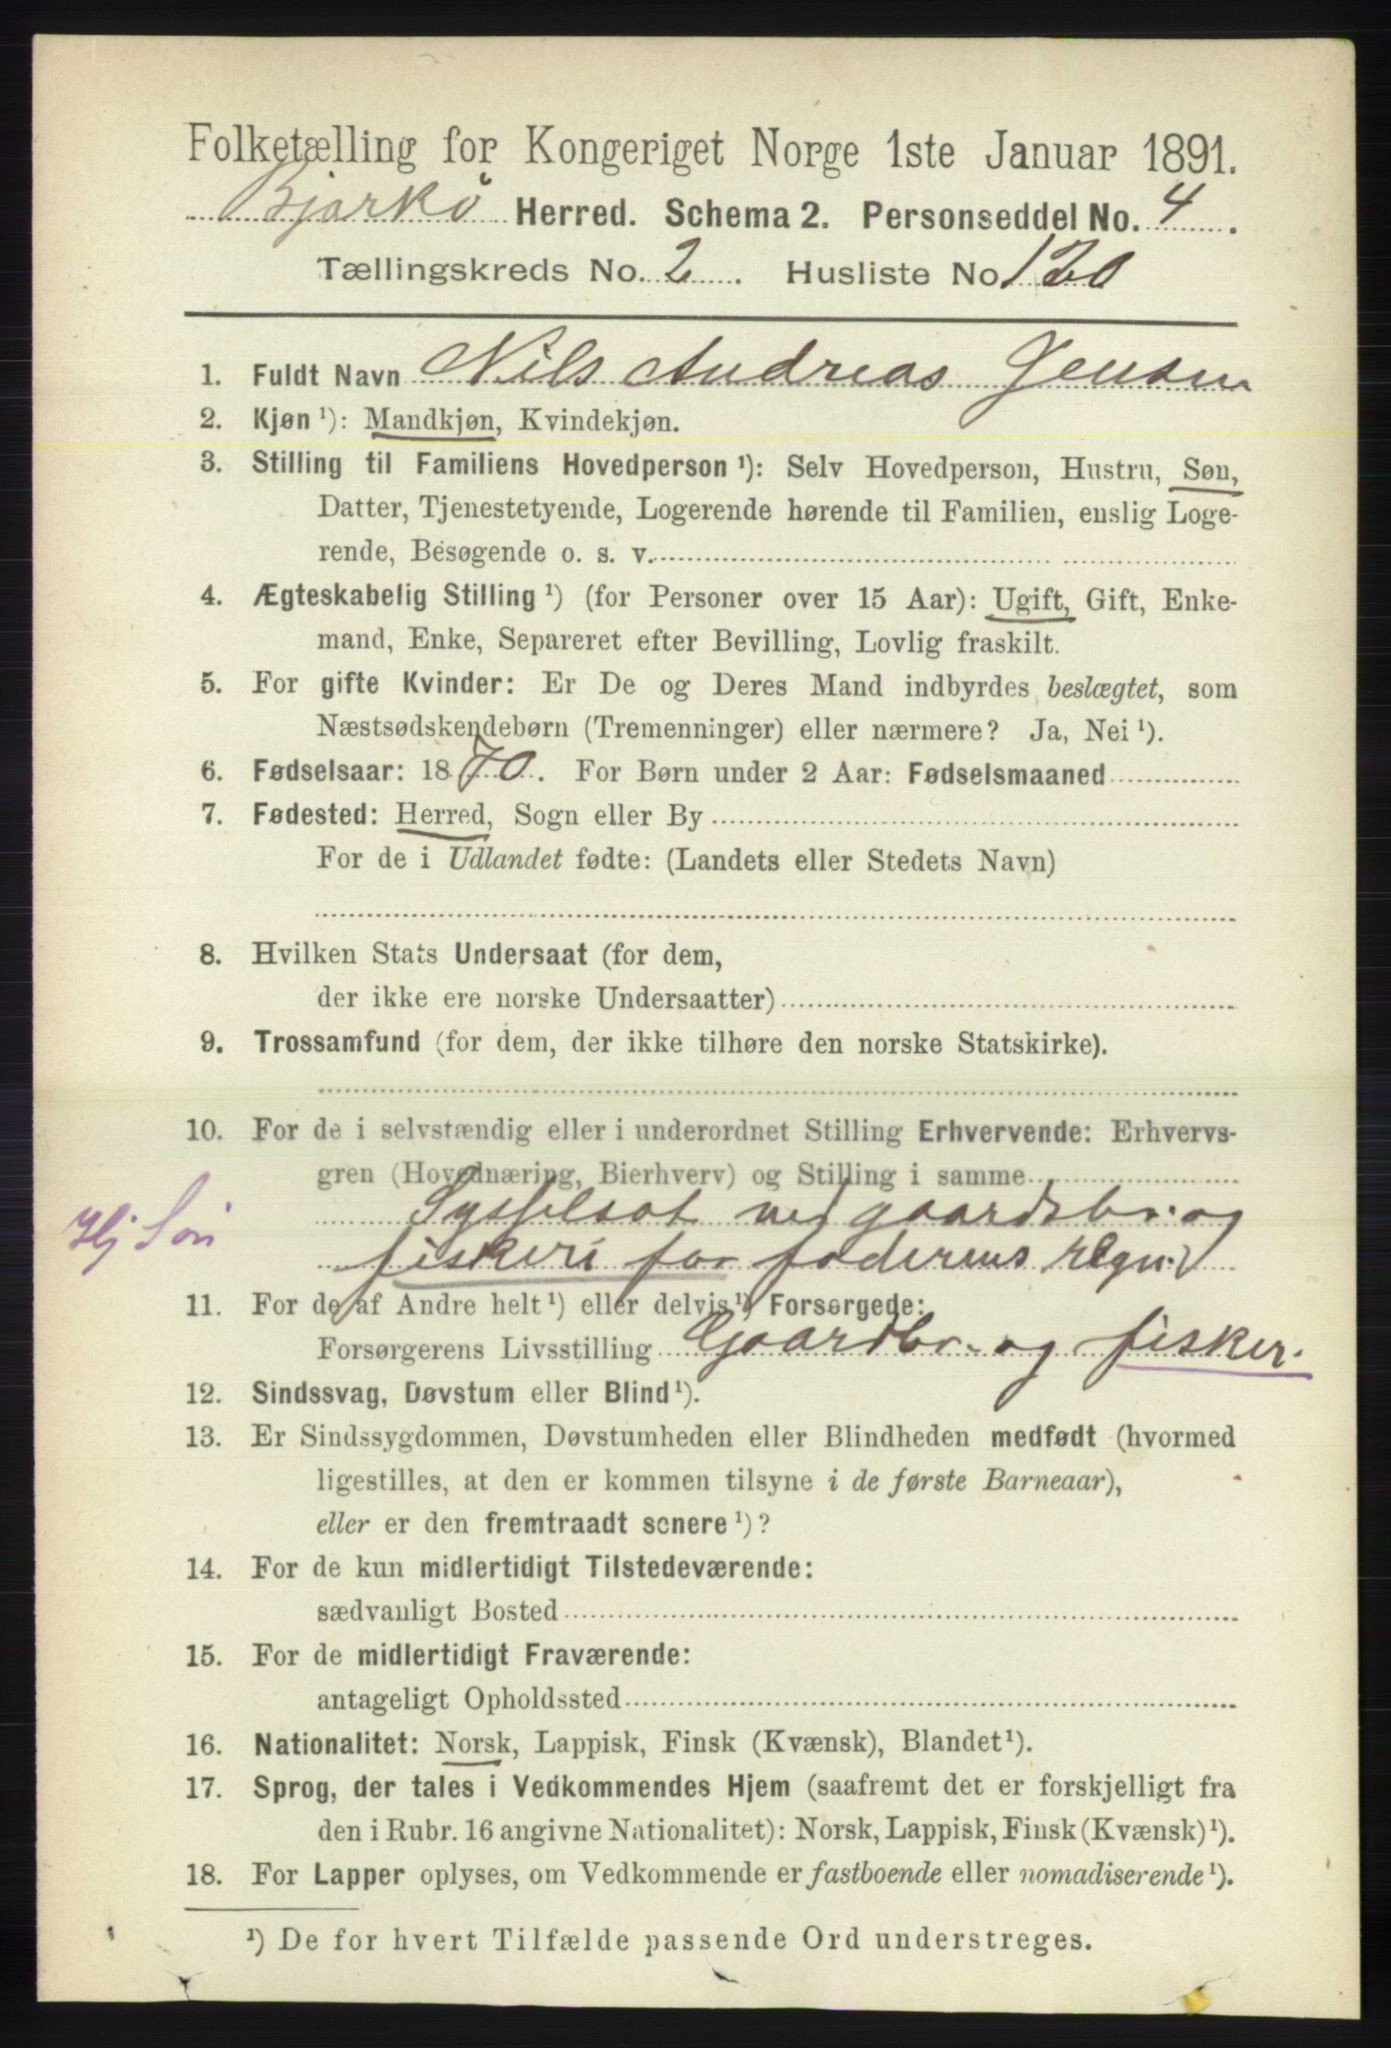 Folketælling for Kongeriget Norge 1ste Januar 1891.
Bjarkö Herred. Schema 2. Personseddel No. 4.
Tællingskreds No. 2. Husliste No 120
1. Fuldt Navn Nils Andreas Jensen
2. Kjøn ¹): Mandkjøn, Kvindekjøn.
3. Stilling til Familiens Hovedperson ¹): Selv Hovedperson, Hustru, Søn,
Datter, Tjenestetyende, Logerende hørende til Familien, enslig Loge-
rende, Besøgende o. s. v.
4. Ægteskabelig Stilling ¹) (for Personer over 15 Aar): Ugift, Gift, Enke-
mand, Enke, Separeret efter Bevilling, Lovlig fraskilt.
5. For gifte Kvinder: Er De og Deres Mand indbyrdes beslægtet, som
Næstsødskendebørn (Tremenninger) eller nærmere? Ja, Nei ¹).
6. Fødselsaar: 1870. For Børn under 2 Aar: Fødselsmaaned
7. Fødested: Herred, Sogn eller By
For de i Udlandet fødte: (Landets eller Stedets Navn)
8. Hvilken Stats Undersaat (for dem,
der ikke ere norske Undersaatter)
9. Trossamfund (for dem, der ikke tilhøre den norske Statskirke).
10. For de i selvstændig eller i underordnet Stilling Erhvervende: Erhvervs-
gren (Hovednæring, Bierhverv) og Stilling i samme
Sysselsat med gaardsbr. og
Hj Søn
fiskeri for faderens regn.
11. For de af Andre helt ¹) eller delvis ¹) Forsørgede:
Forsørgerens Livsstilling Gaardbr. og fisker.
12. Sindssvag, Døvstum eller Blind ¹).
13. Er Sindssygdommen, Døvstumheden eller Blindheden medfødt (hvormed
ligestilles, at den er kommen tilsyne i de første Barneaar),
eller er den fremtraadt senere ¹)?
14. For de kun midlertidigt Tilstedeværende:
sædvanligt Bosted
15. For de midlertidigt Fraværende:
antageligt Opholdssted
16. Nationalitet: Norsk, Lappisk, Finsk (Kvænsk), Blandet ¹).
17. Sprog, der tales i Vedkommendes Hjem (saafremt det er forskjelligt fra
den i Rubr. 16 angivne Nationalitet): Norsk, Lappisk, Finsk (Kvænsk) ¹).
18. For Lapper oplyses, om Vedkommende er fastboende eller nomadiserende ¹).
¹) De for hvert Tilfælde passende Ord understreges.